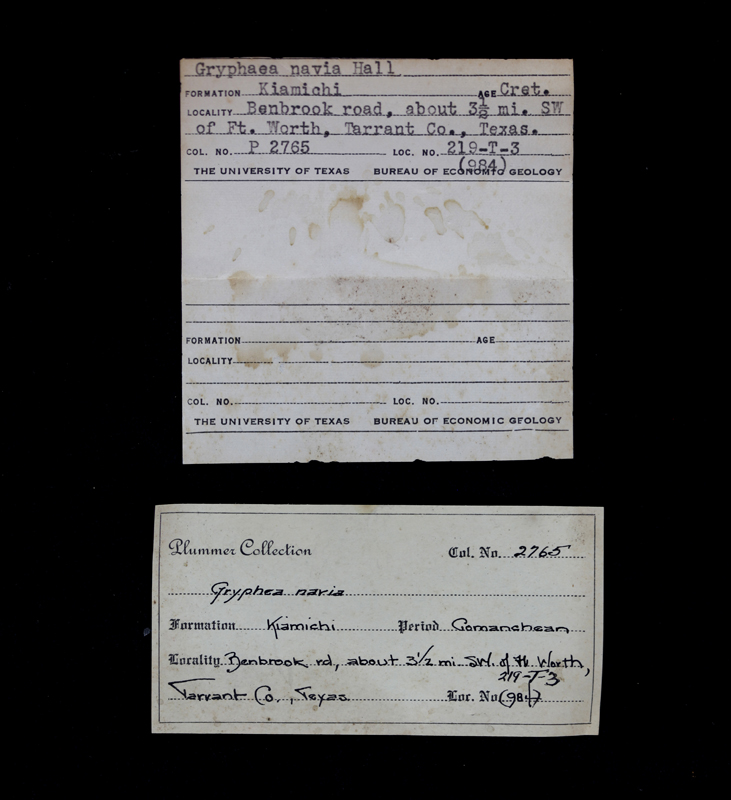 Gryphaea navia Hall
FORMATION Kiamichi AGE Cret.
LOCALITY Benbrook road, about 3½ mi. SW
of Ft. Worth, Tarrant Co., Texas.
COL. NO. P 2765 LOC. NO. 219-T-3
(984)
THE UNIVERSITY OF TEXAS BUREAU OF ECONOMIC GEOLOGY
FORMATION AGE
LOCALITY
COL. NO. LOC. NO.
THE UNIVERSITY OF TEXAS BUREAU OF ECONOMIC GEOLOGY
Plummer Collection Col. No. 2765
Gryphea navia
Formation Kiamichi Period Comanchean
Locality Benbrook rd, about 3½ mi SW. of Ft Worth,
219-T-3
Tarrant Co., Texas Loc. No. (984)